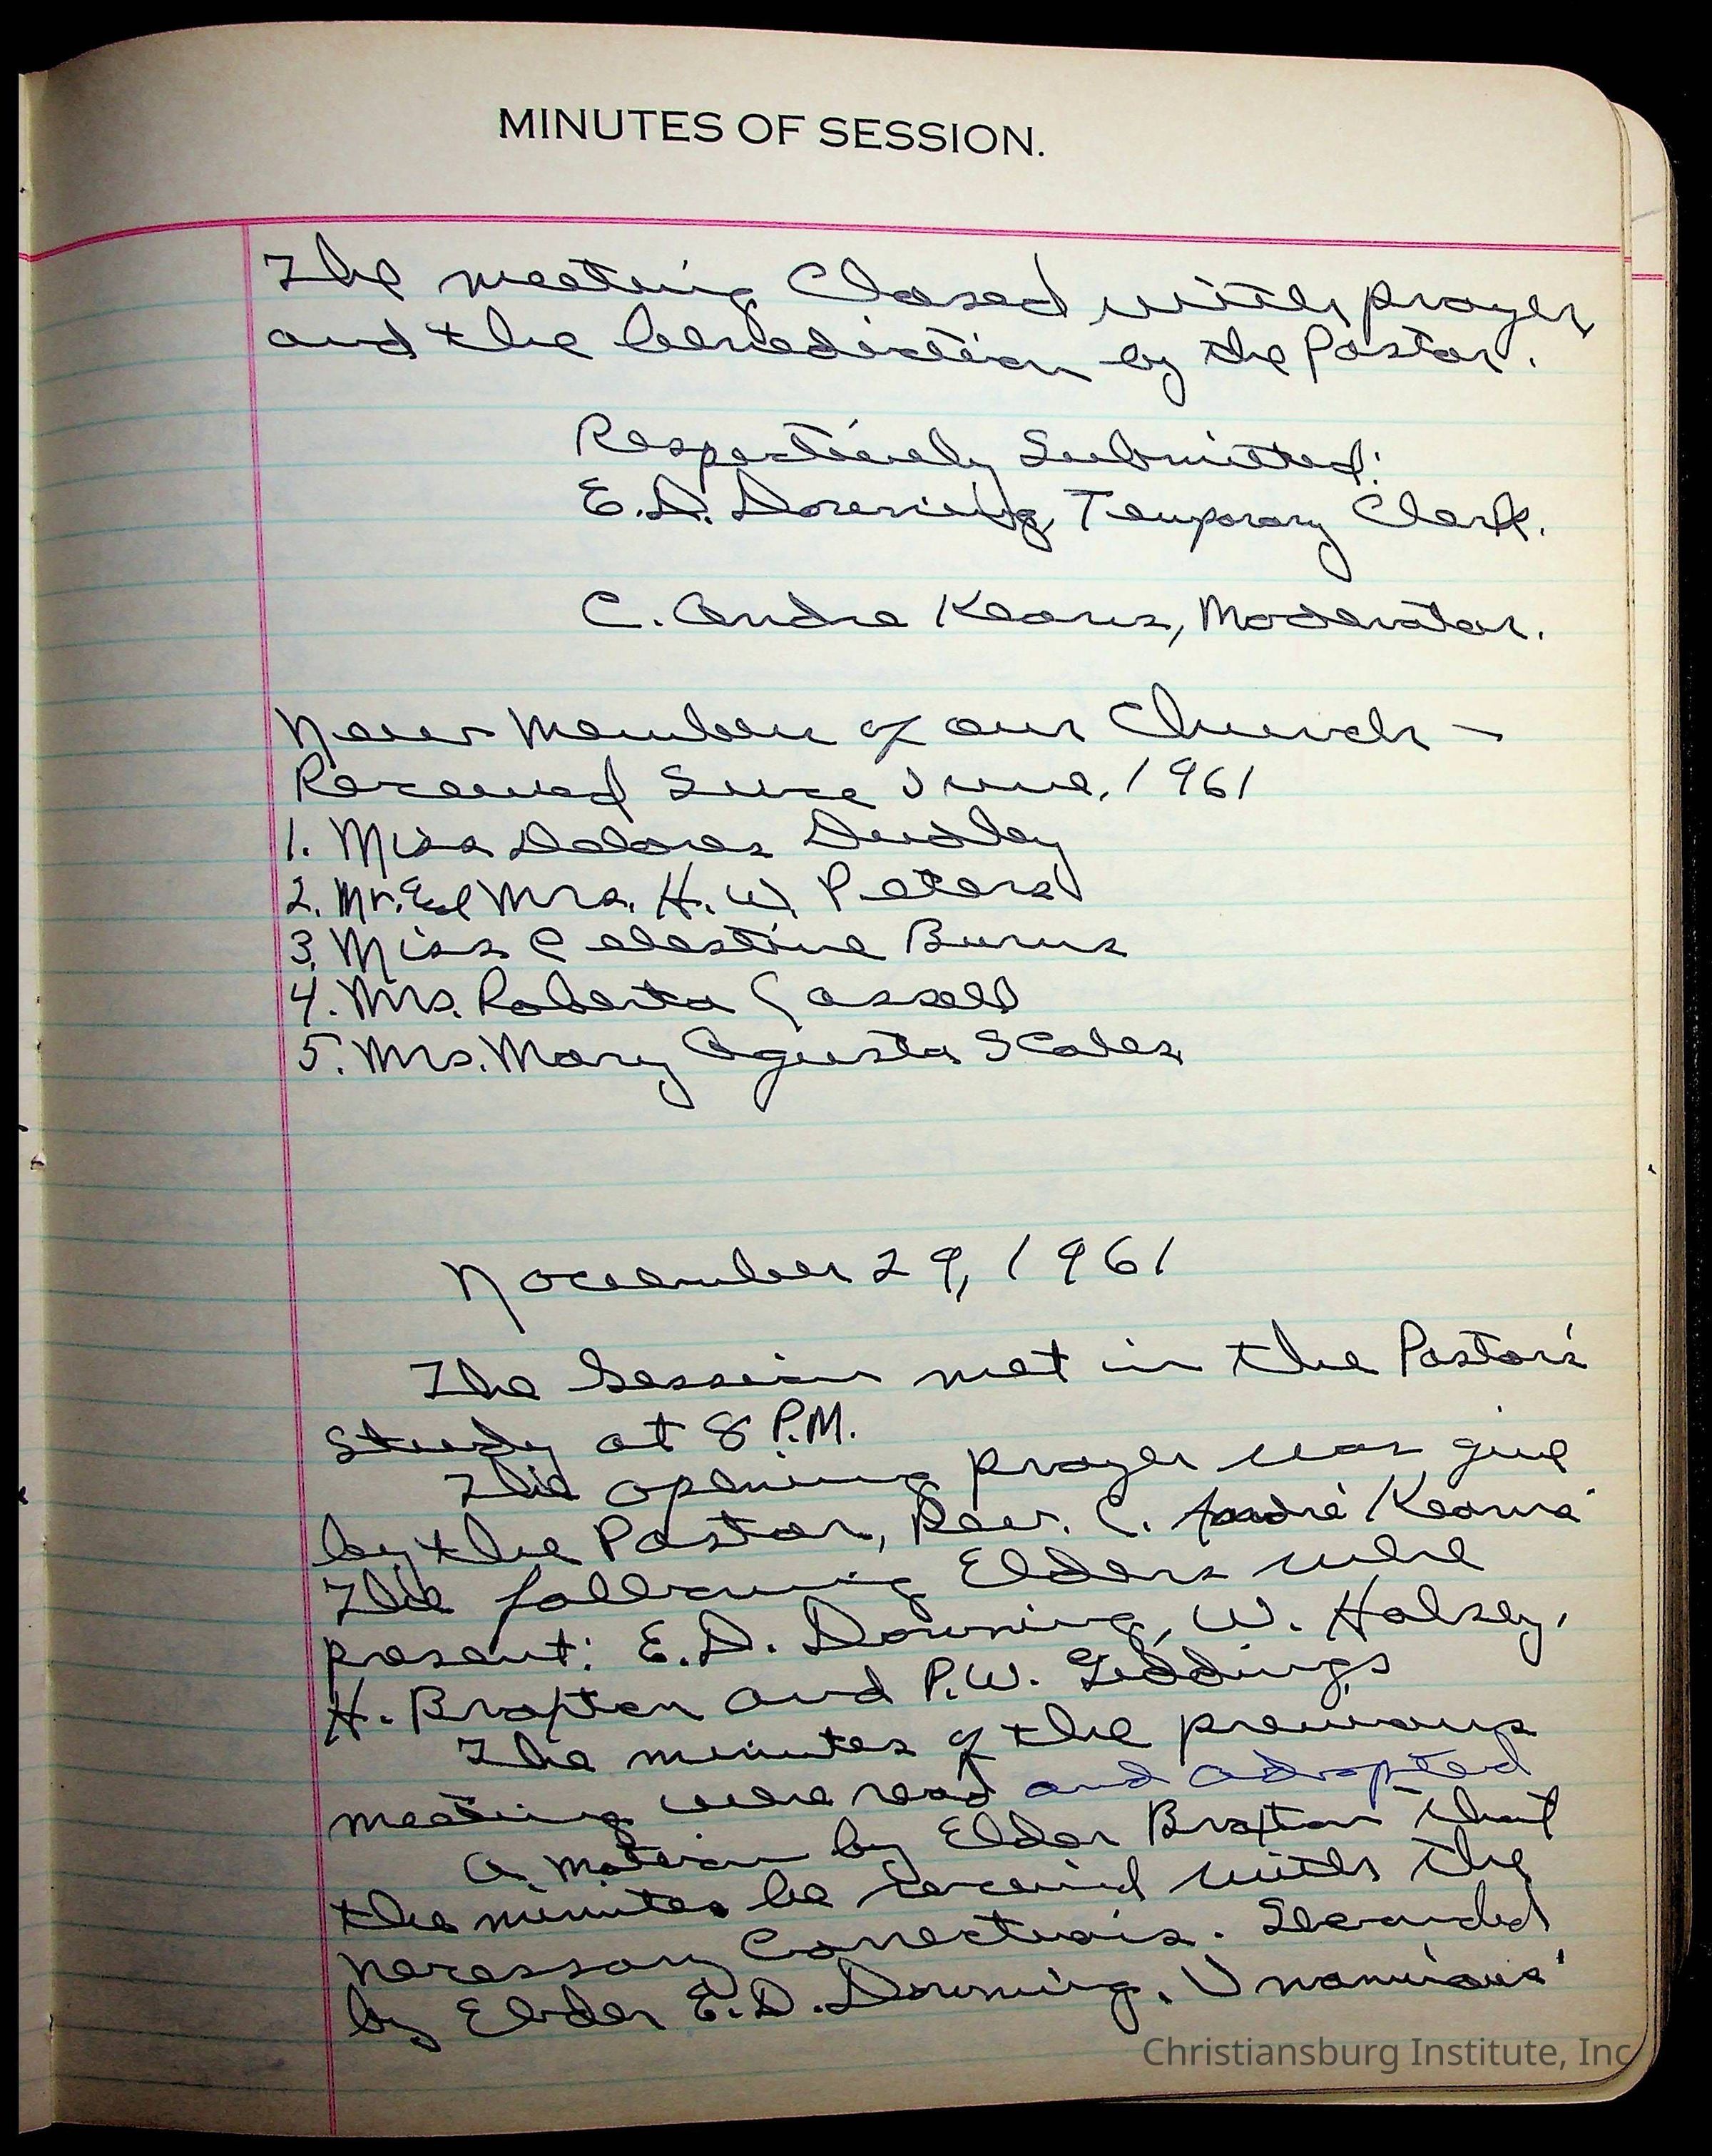 MINUTES OF SESSION.
The meeting Closed with prayer
and the benediction by the Pastor.
Respectively Submitted:
E.D. Downing, Temporary Clerk.
C. Andre Kearns, Moderator.
New Members of our Church -
Received Since June, 1961
1. Miss Dolores Dudley
2. Mr. & Mrs. H. W. Peters
3. Miss Celestine Burns
4. Mrs. Roberta Cassell
5. Mrs. Mary Agusta Scales
November 29, 1961
The Session met in the Pastor's
study at 8 P.M.
The opening prayer was give
by the Pastor, Rev. C. André Kearns
The following Elders were
present: E.D. Downing, W. Halsey,
H. Braxton and P.W. Giddings
The minutes of the previous
meeting were read and adopted
A motion by Elder Braxton that
the minutes be received with the
necessary Corrections. Seconded
by Elder E.D. Downing. Unanimous
Christiansburg Institute, Inc